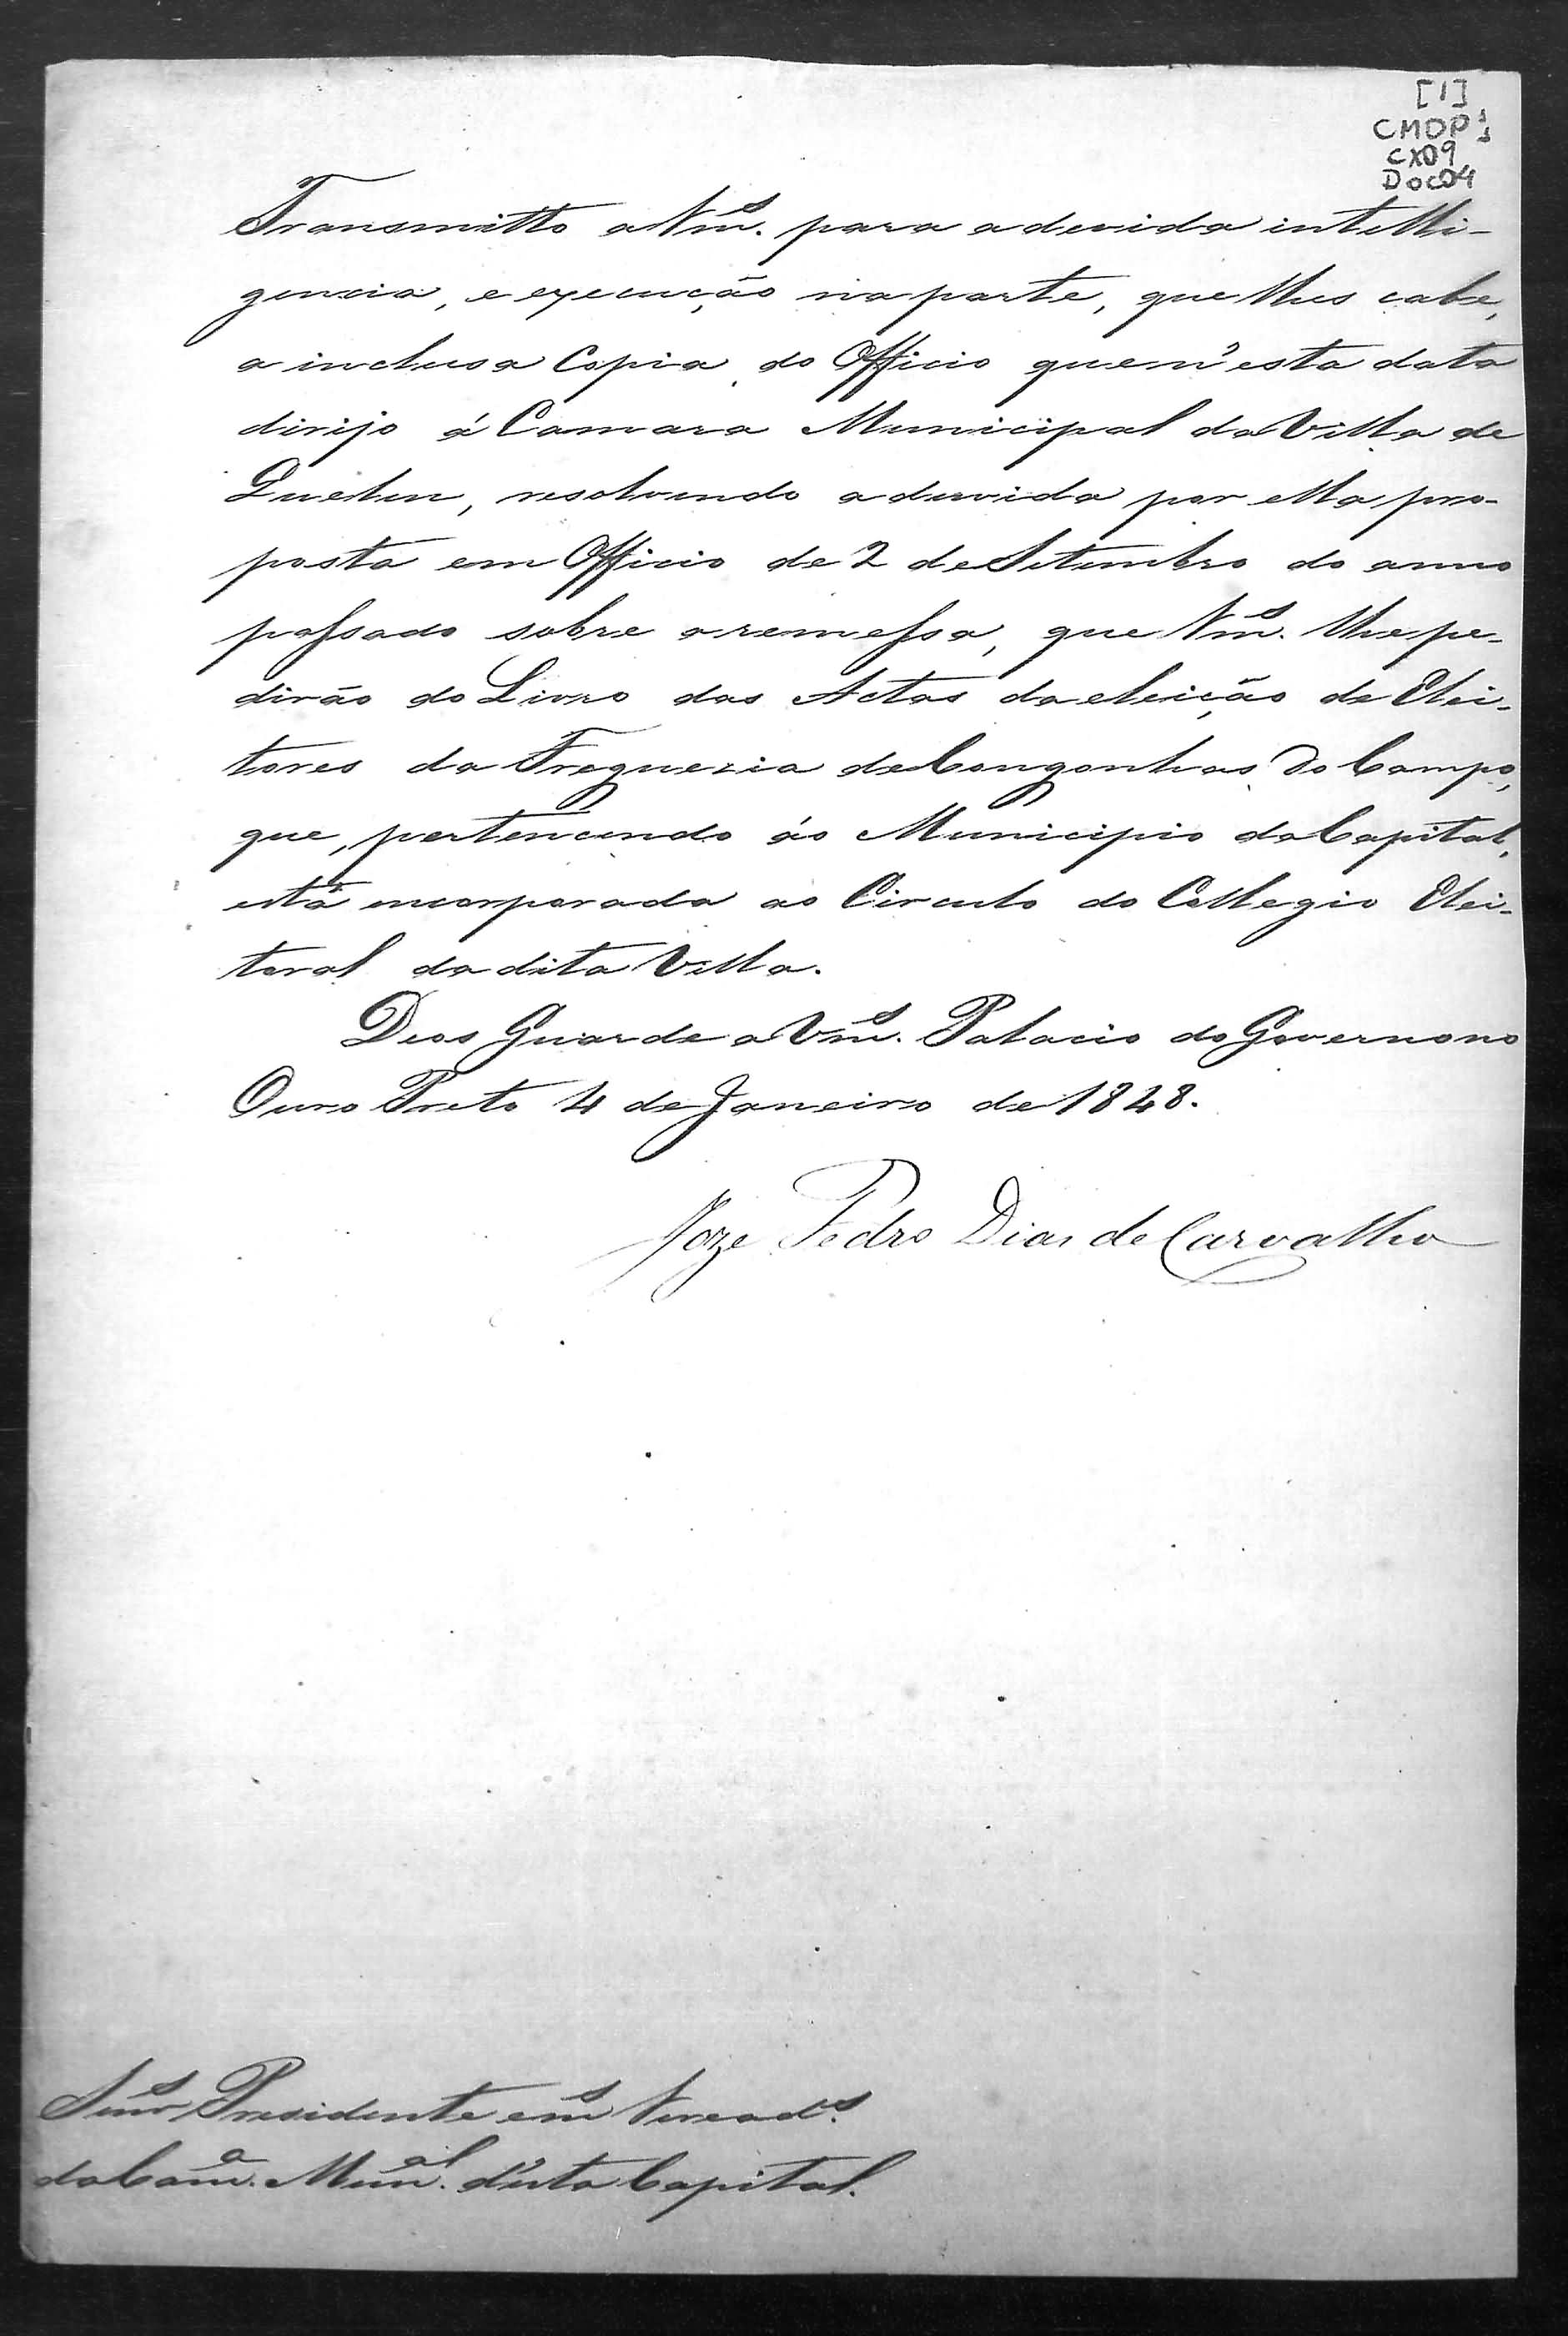 [1]
CMOP 1
CX09 1
Doc04
Transmitto a Vm.ˢ para a devida intelli-
gencia, e execução na parte, que lhes cabe,
a inclusa Copia do Officio que n'esta data
dirijo á Camara Municipal da Villa de
Queluz, resolvendo a duvida por ella pro-
posta em Officio de 2 de Setembro do anno
passado sobre a remessa, que Vm.ˢ lhe pe-
dirão do Livro das Actas da eleição de Elei-
tores da Freguezia de Congonhas do Campo,
que, pertencendo ao Municipio da Capital,
está encorporada ao Circulo do Collegio Elei-
toral da dita Villa.
Deos Guarde a Vm.ˢ Palacio do Governo no
Ouro Preto 4 de Janeiro de 1848.
Joze Pedro Dias de Carvalho
Snr.ˢ Presidente e m.ˢ Veread.ˢ
da Cam.ª Mun.ᵃˡ d'esta Capital.